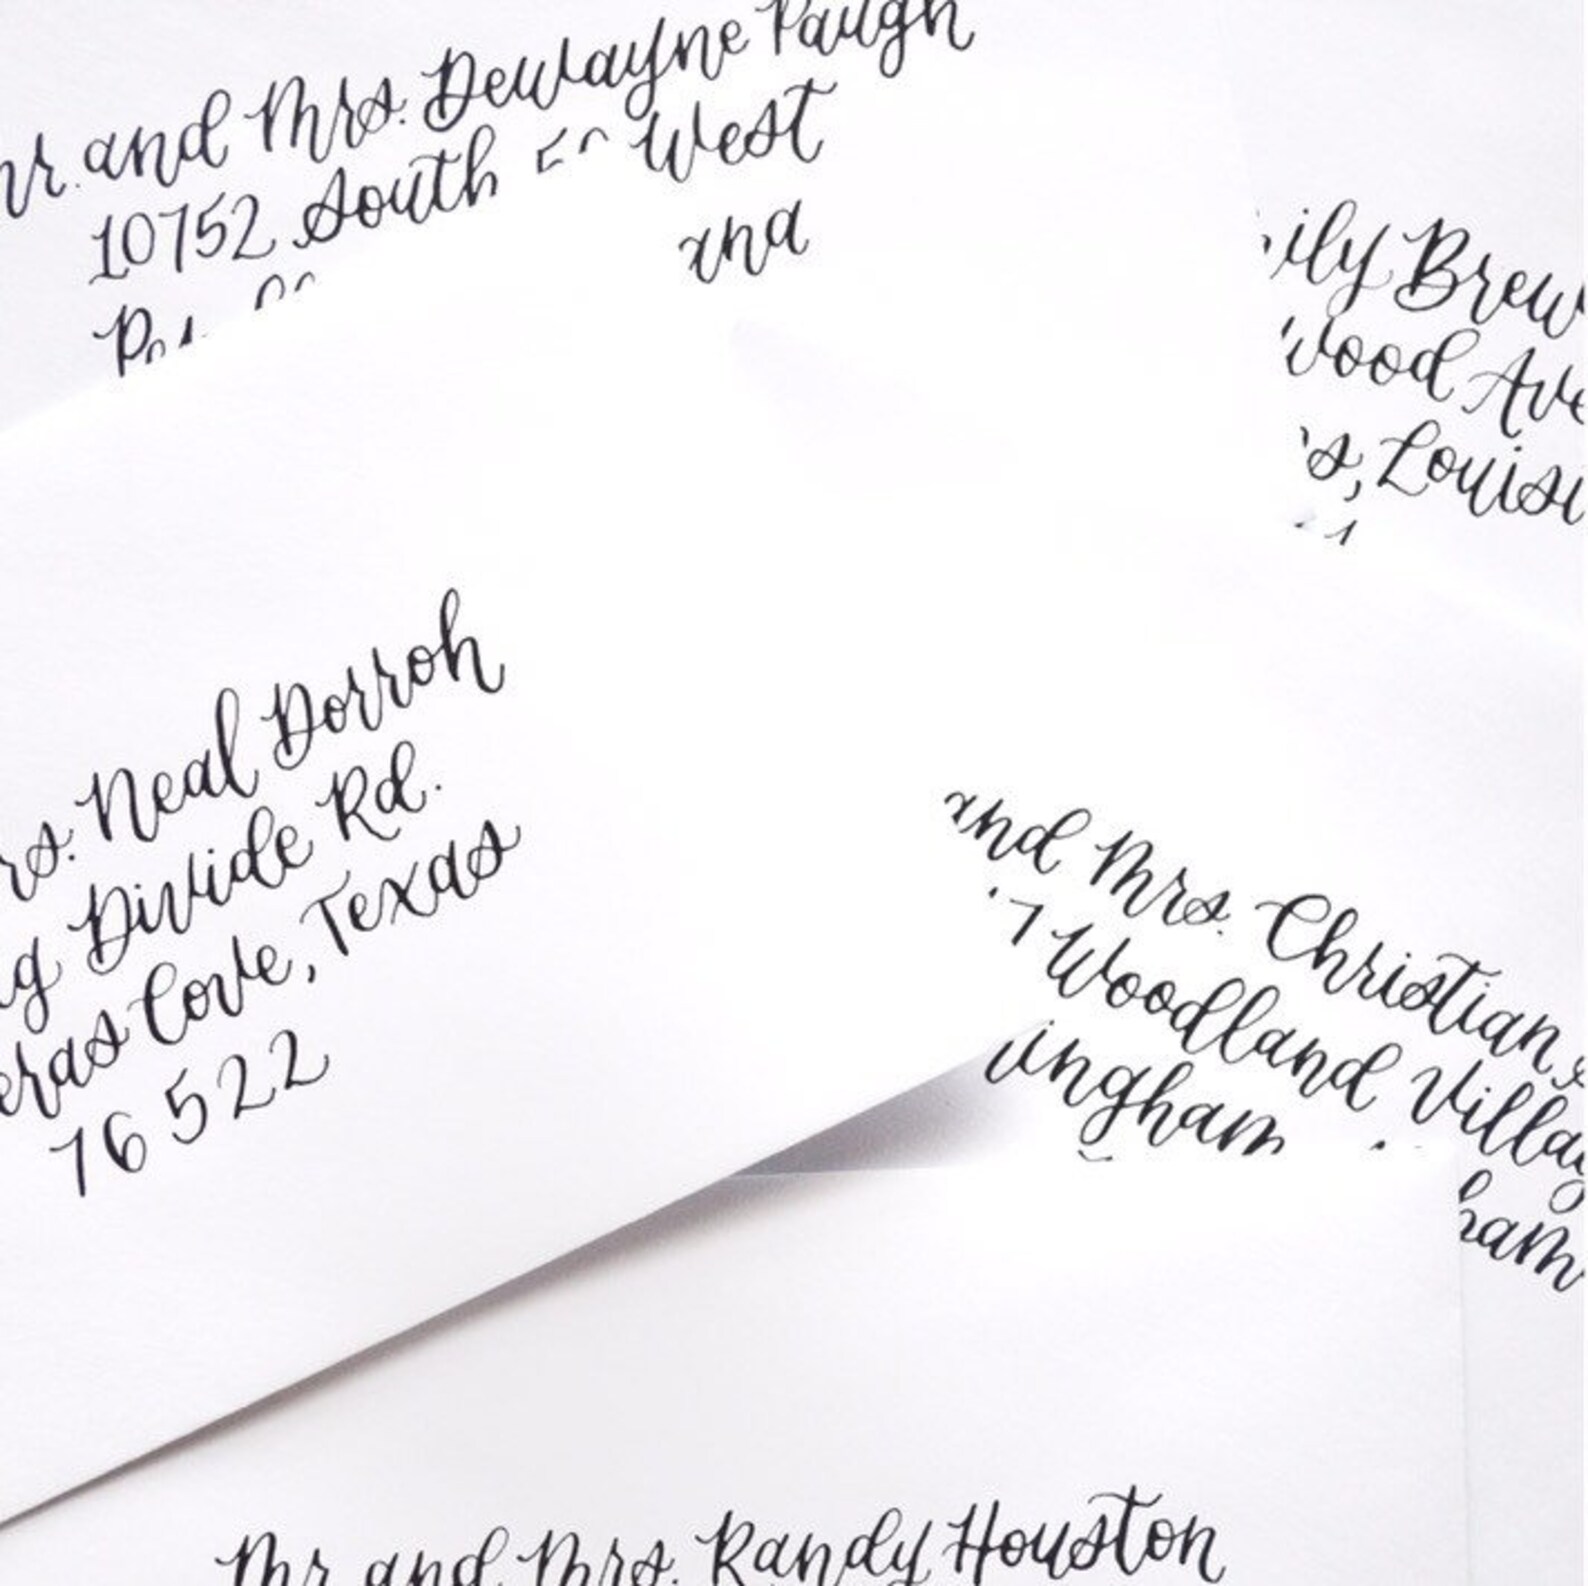 and Mrs. Dewayne Paugh
10752 South West
ily Brew
wood Ave
s, Louisi
rs. Neal Dorroh
g Divide Rd.
eras Cove, Texas
76522
and Mrs. Christian
7 Woodland Villag
ingham
ham
Mr and Mrs. Randy Houston